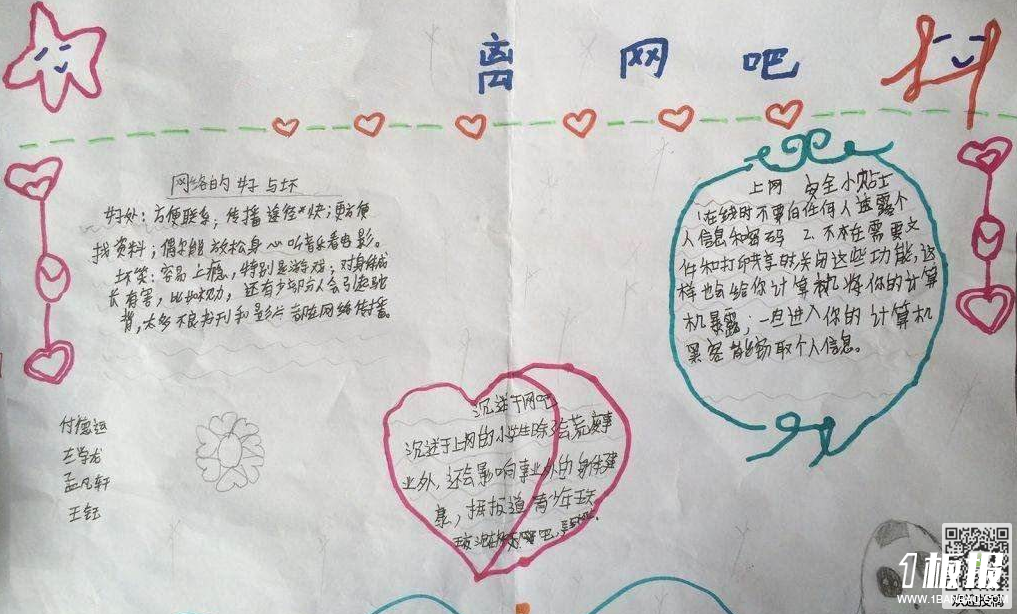 离 网 吧
网络的好与坏
好处：方便联系，传播途径快；更方便
找资料；偶尔能放松身心听音乐看电影。
坏笑：容易上瘾，特别是游戏；对身体成
长有害，比如视力，还有少部分人会引起驼
背，太多不良书刊和影片都在网络传播。
上网 安全小贴士
1在线时不要向任何人透露个
人信息和密码 2.不在需要文
件和打印共享时关闭这些功能，这
样也会给你计算机将你的计算
机暴露；一旦进入你的计算机
黑客能窃取个人信息。
沉迷于网吧
沉迷于上网的小学生除了会荒废事
业外，还会影响事业外的身体健
康，据报道青少年
付德运
孟凡轩
王钰
1板报
WWW.1BANBAO.COM